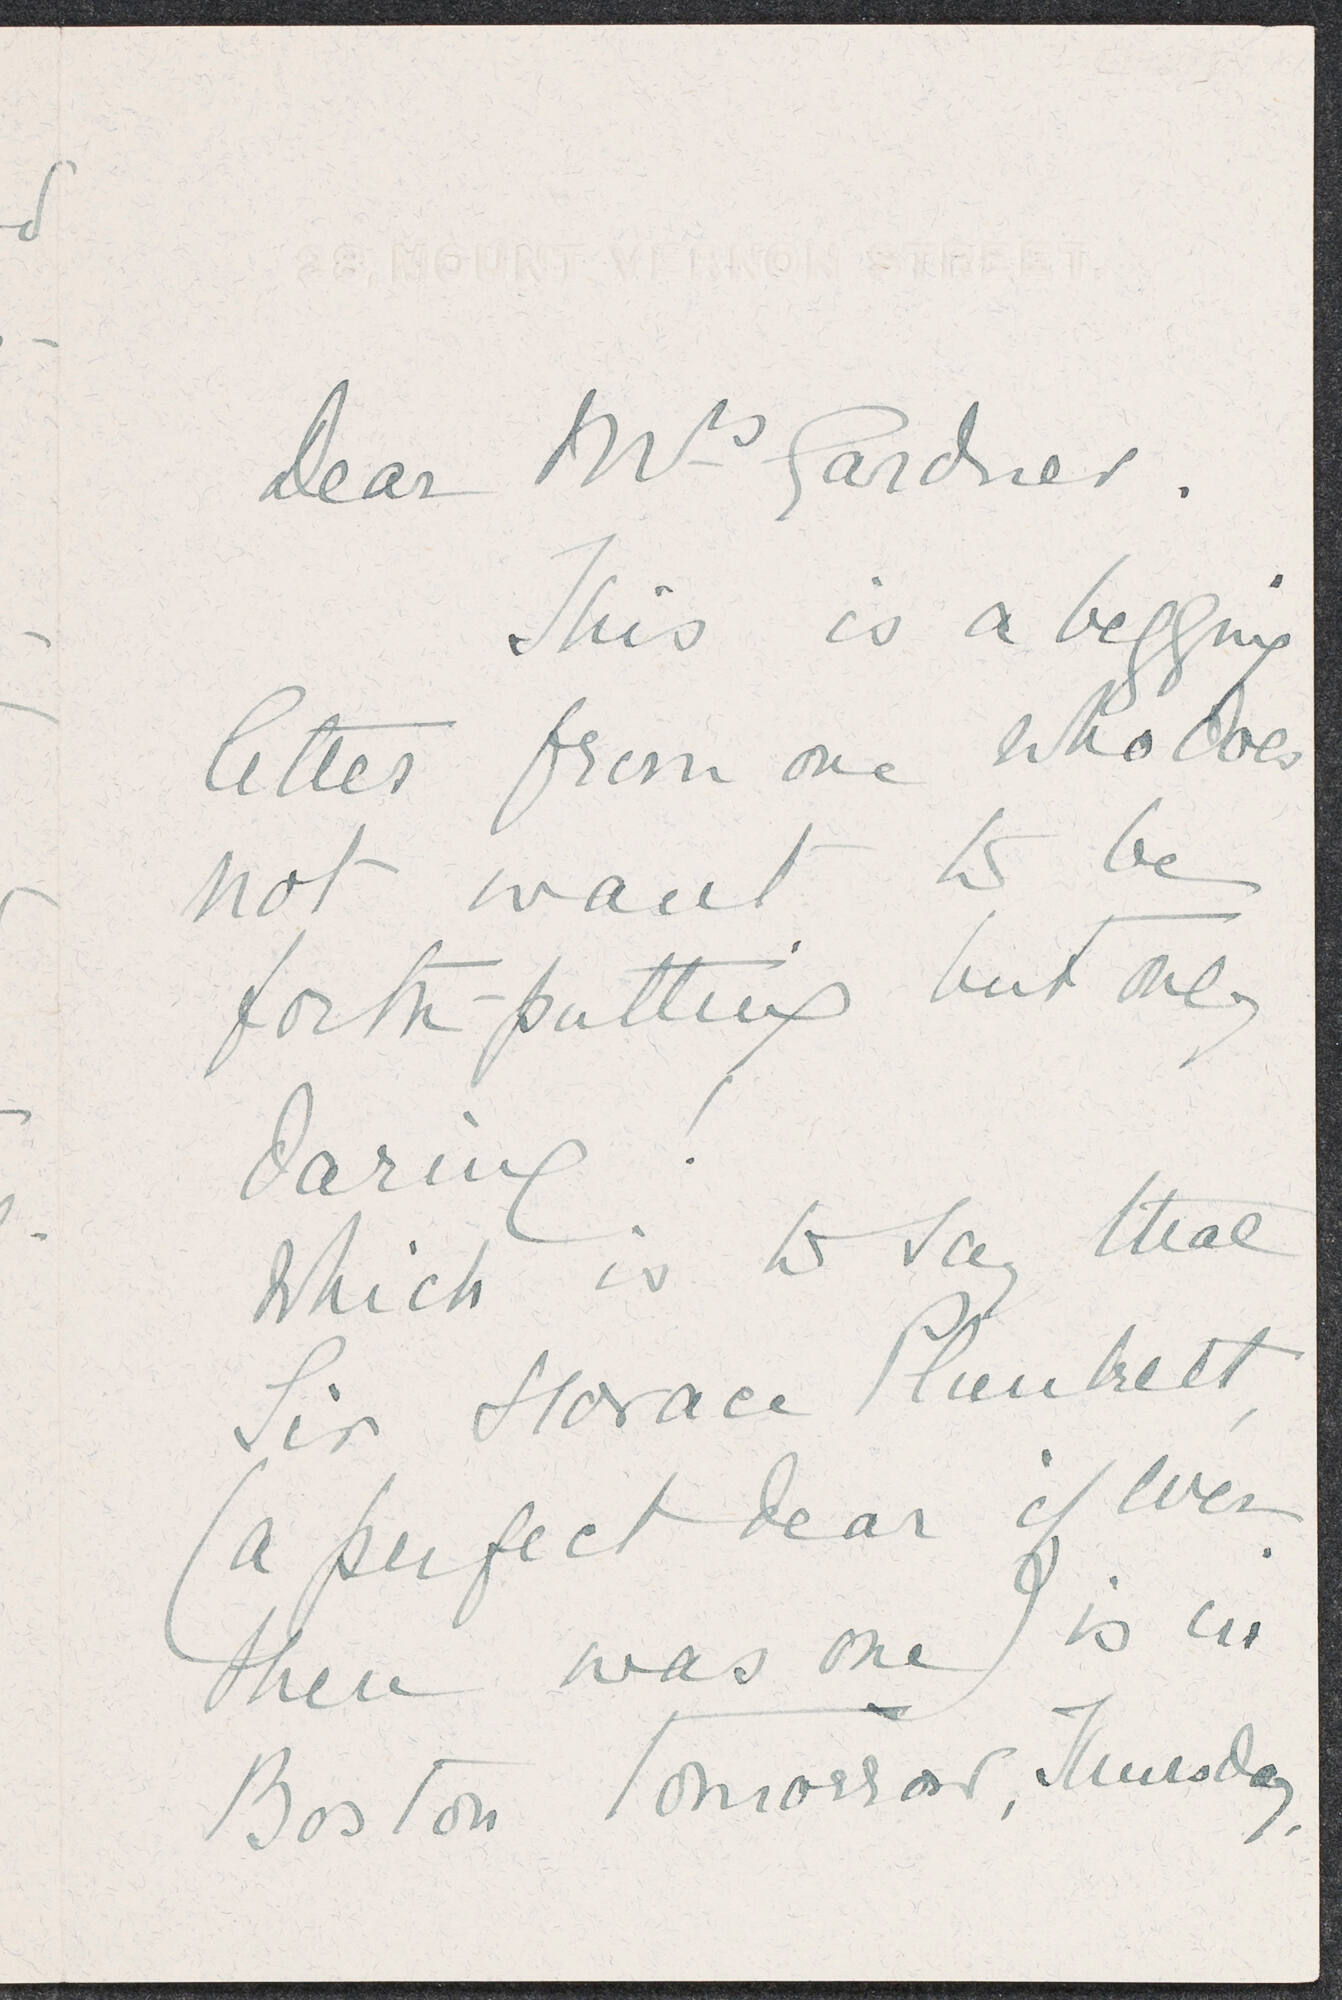 28, MOUNT VERNON STREET.
Dear Mrs Gardner.
This is a begging
letter from one who does
not want to be
forth-putting but only
daring!
Which is to say that
Sir Horace Plunkett,
(a perfect dear if ever
there was one) is in
Boston tomorrow, Thursday,